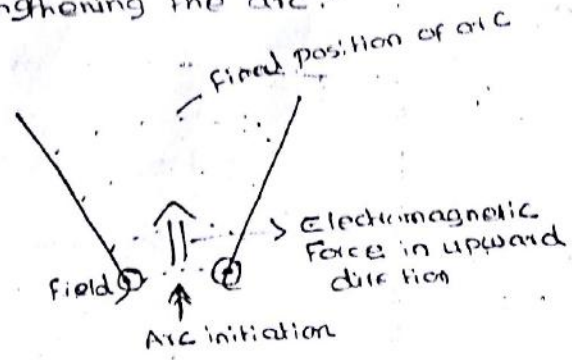 ngthening the arc.
final position of arc
Electromagnetic
Force in upward
direction
field
Arc initiation